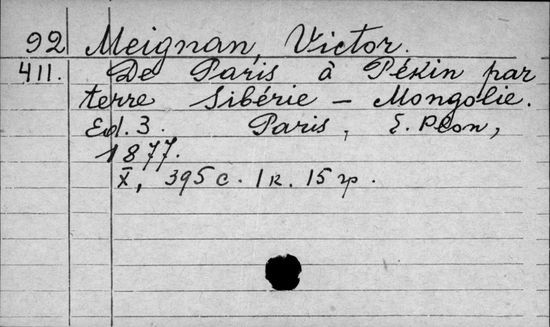 92 Meignan, Victor.
411. De Paris à Pékin par
terre Sibérie – Mongolie.
Ed. 3. Paris, E. Plon,
1877.
X, 395 с. 1 к. 15 гр.